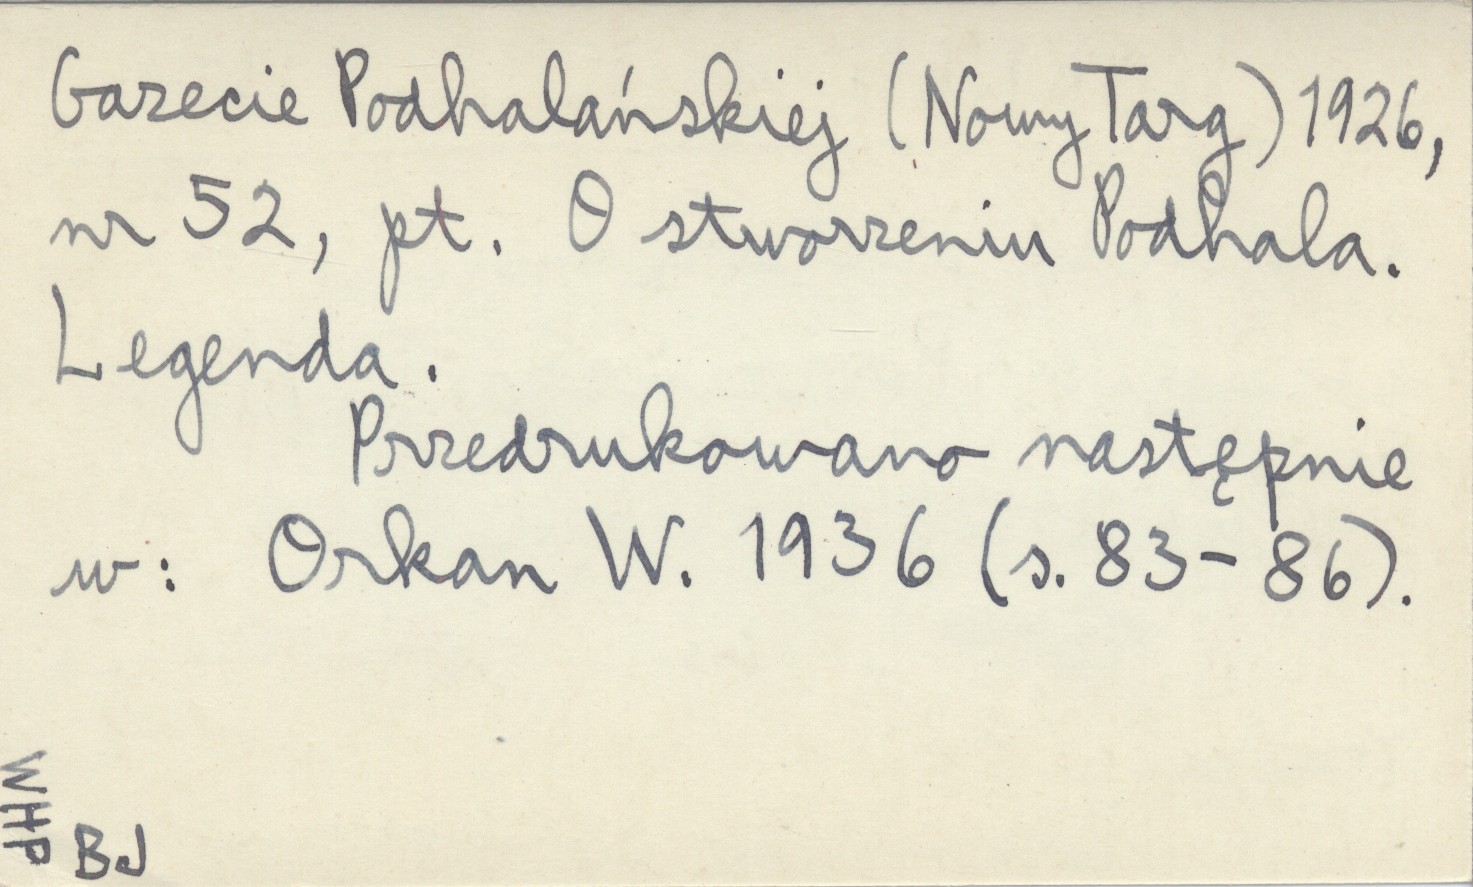 Gazecie Podhalańskiej (Nowy Targ) 1926,
nr 52, pt. O stworzeniu Podhala.
Legenda.
Przedrukowano następnie
w: Orkan W. 1936 (s. 83-86).
WHP
BJ